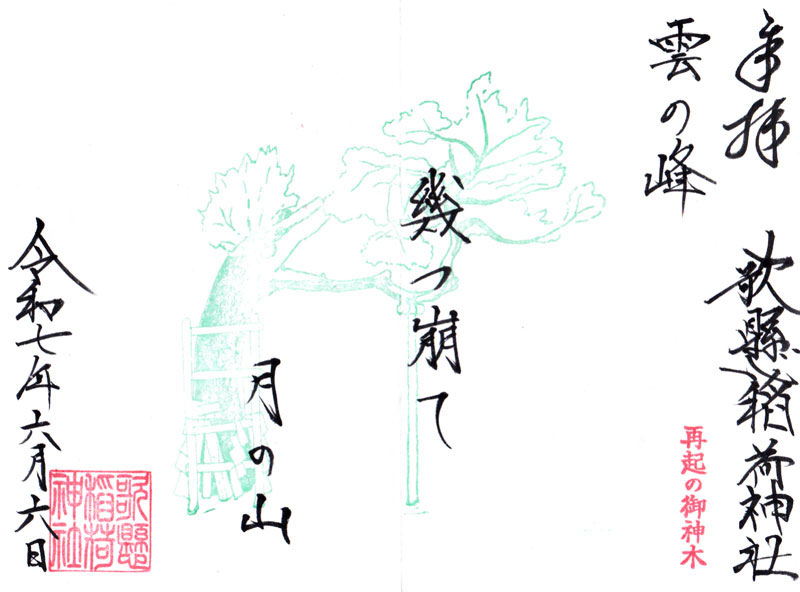 奉拝
歌懸稲荷神社
再起の御神木
雲の峰
幾つ崩て
月の山
令和七年六月六日
歌懸
稲荷
神社